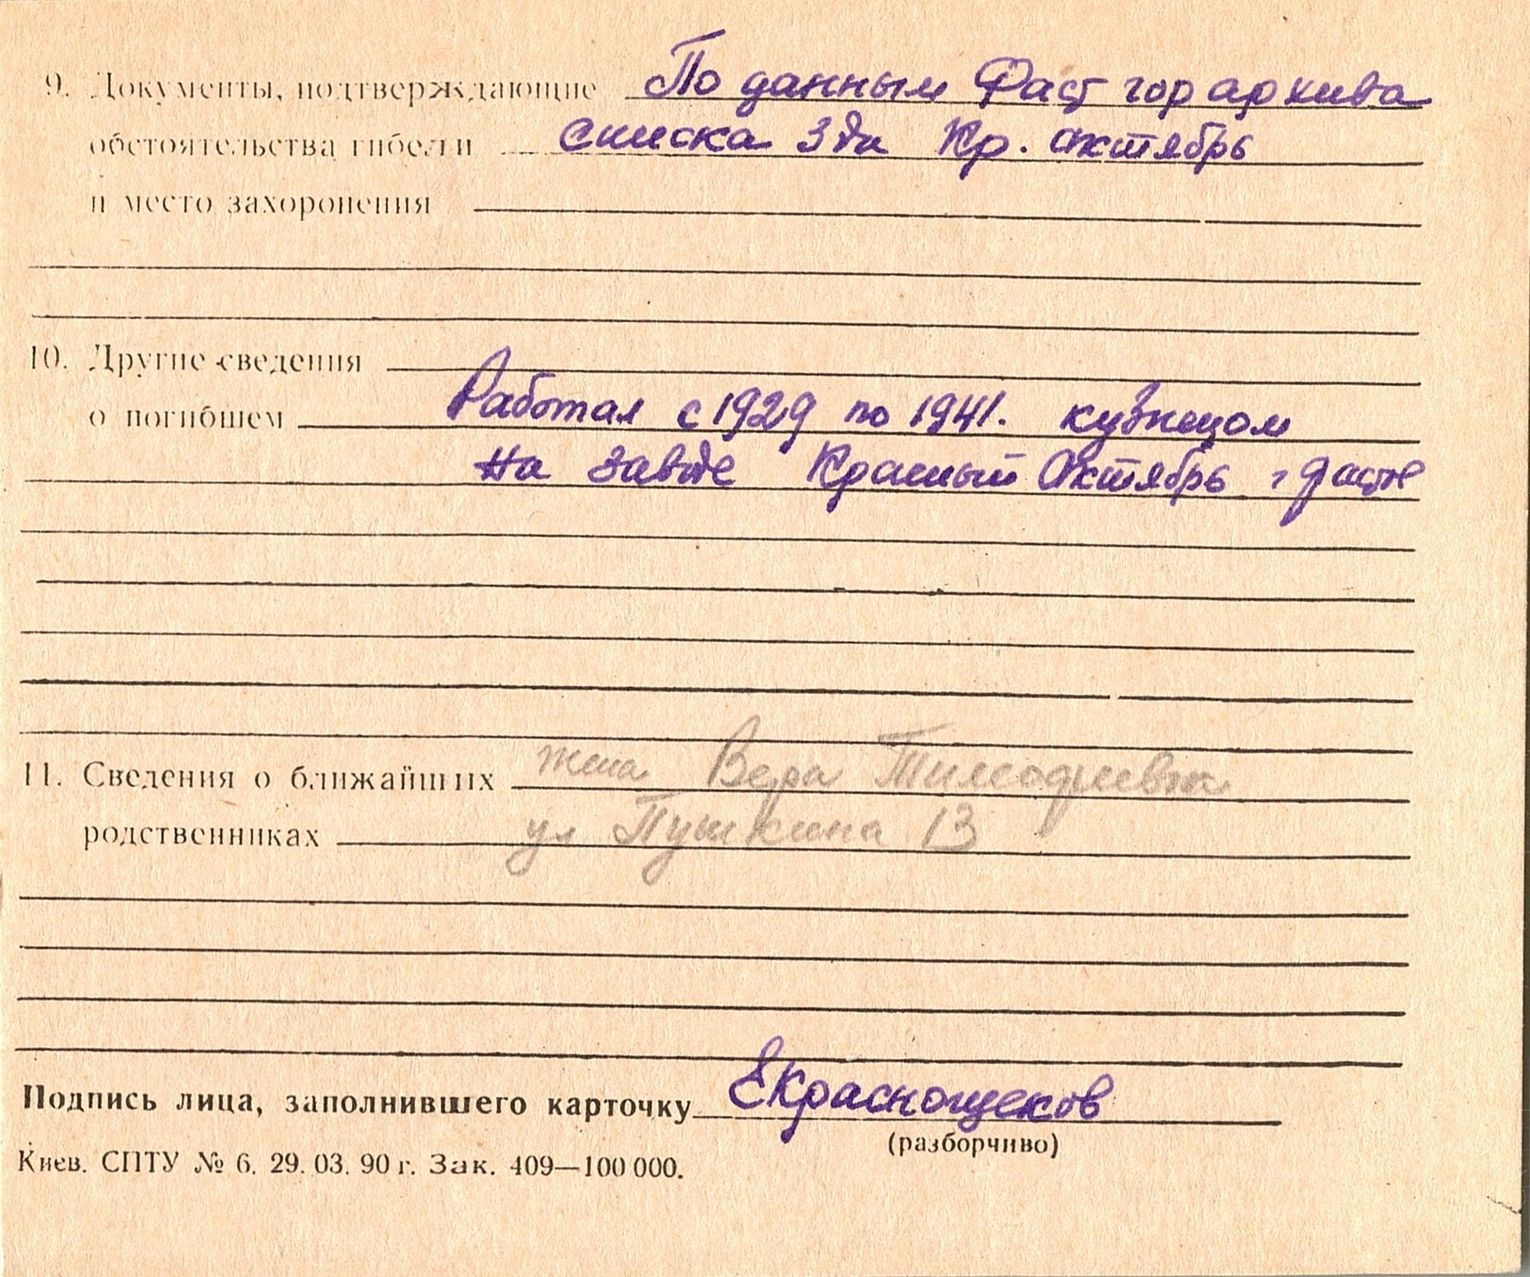 9. Документы, подтверждающие По данным Фаст гор архива
обстоятельства гибели списка з да Кр. Октябрь
и место захоронения
10. Другие сведения
о погибшем Работал с 1929 по 1941. кузнецом
на заводе Красный Октябрь г Фастов
11. Сведения о ближайших жена Вера Тимофеевна
родственниках ул Пушкина 13
Подпись лица, заполнившего карточку ЕКраснощеков
(разборчиво)
Киев. СПТУ № 6. 29. 03. 90 г. Зак. 409—100 000.